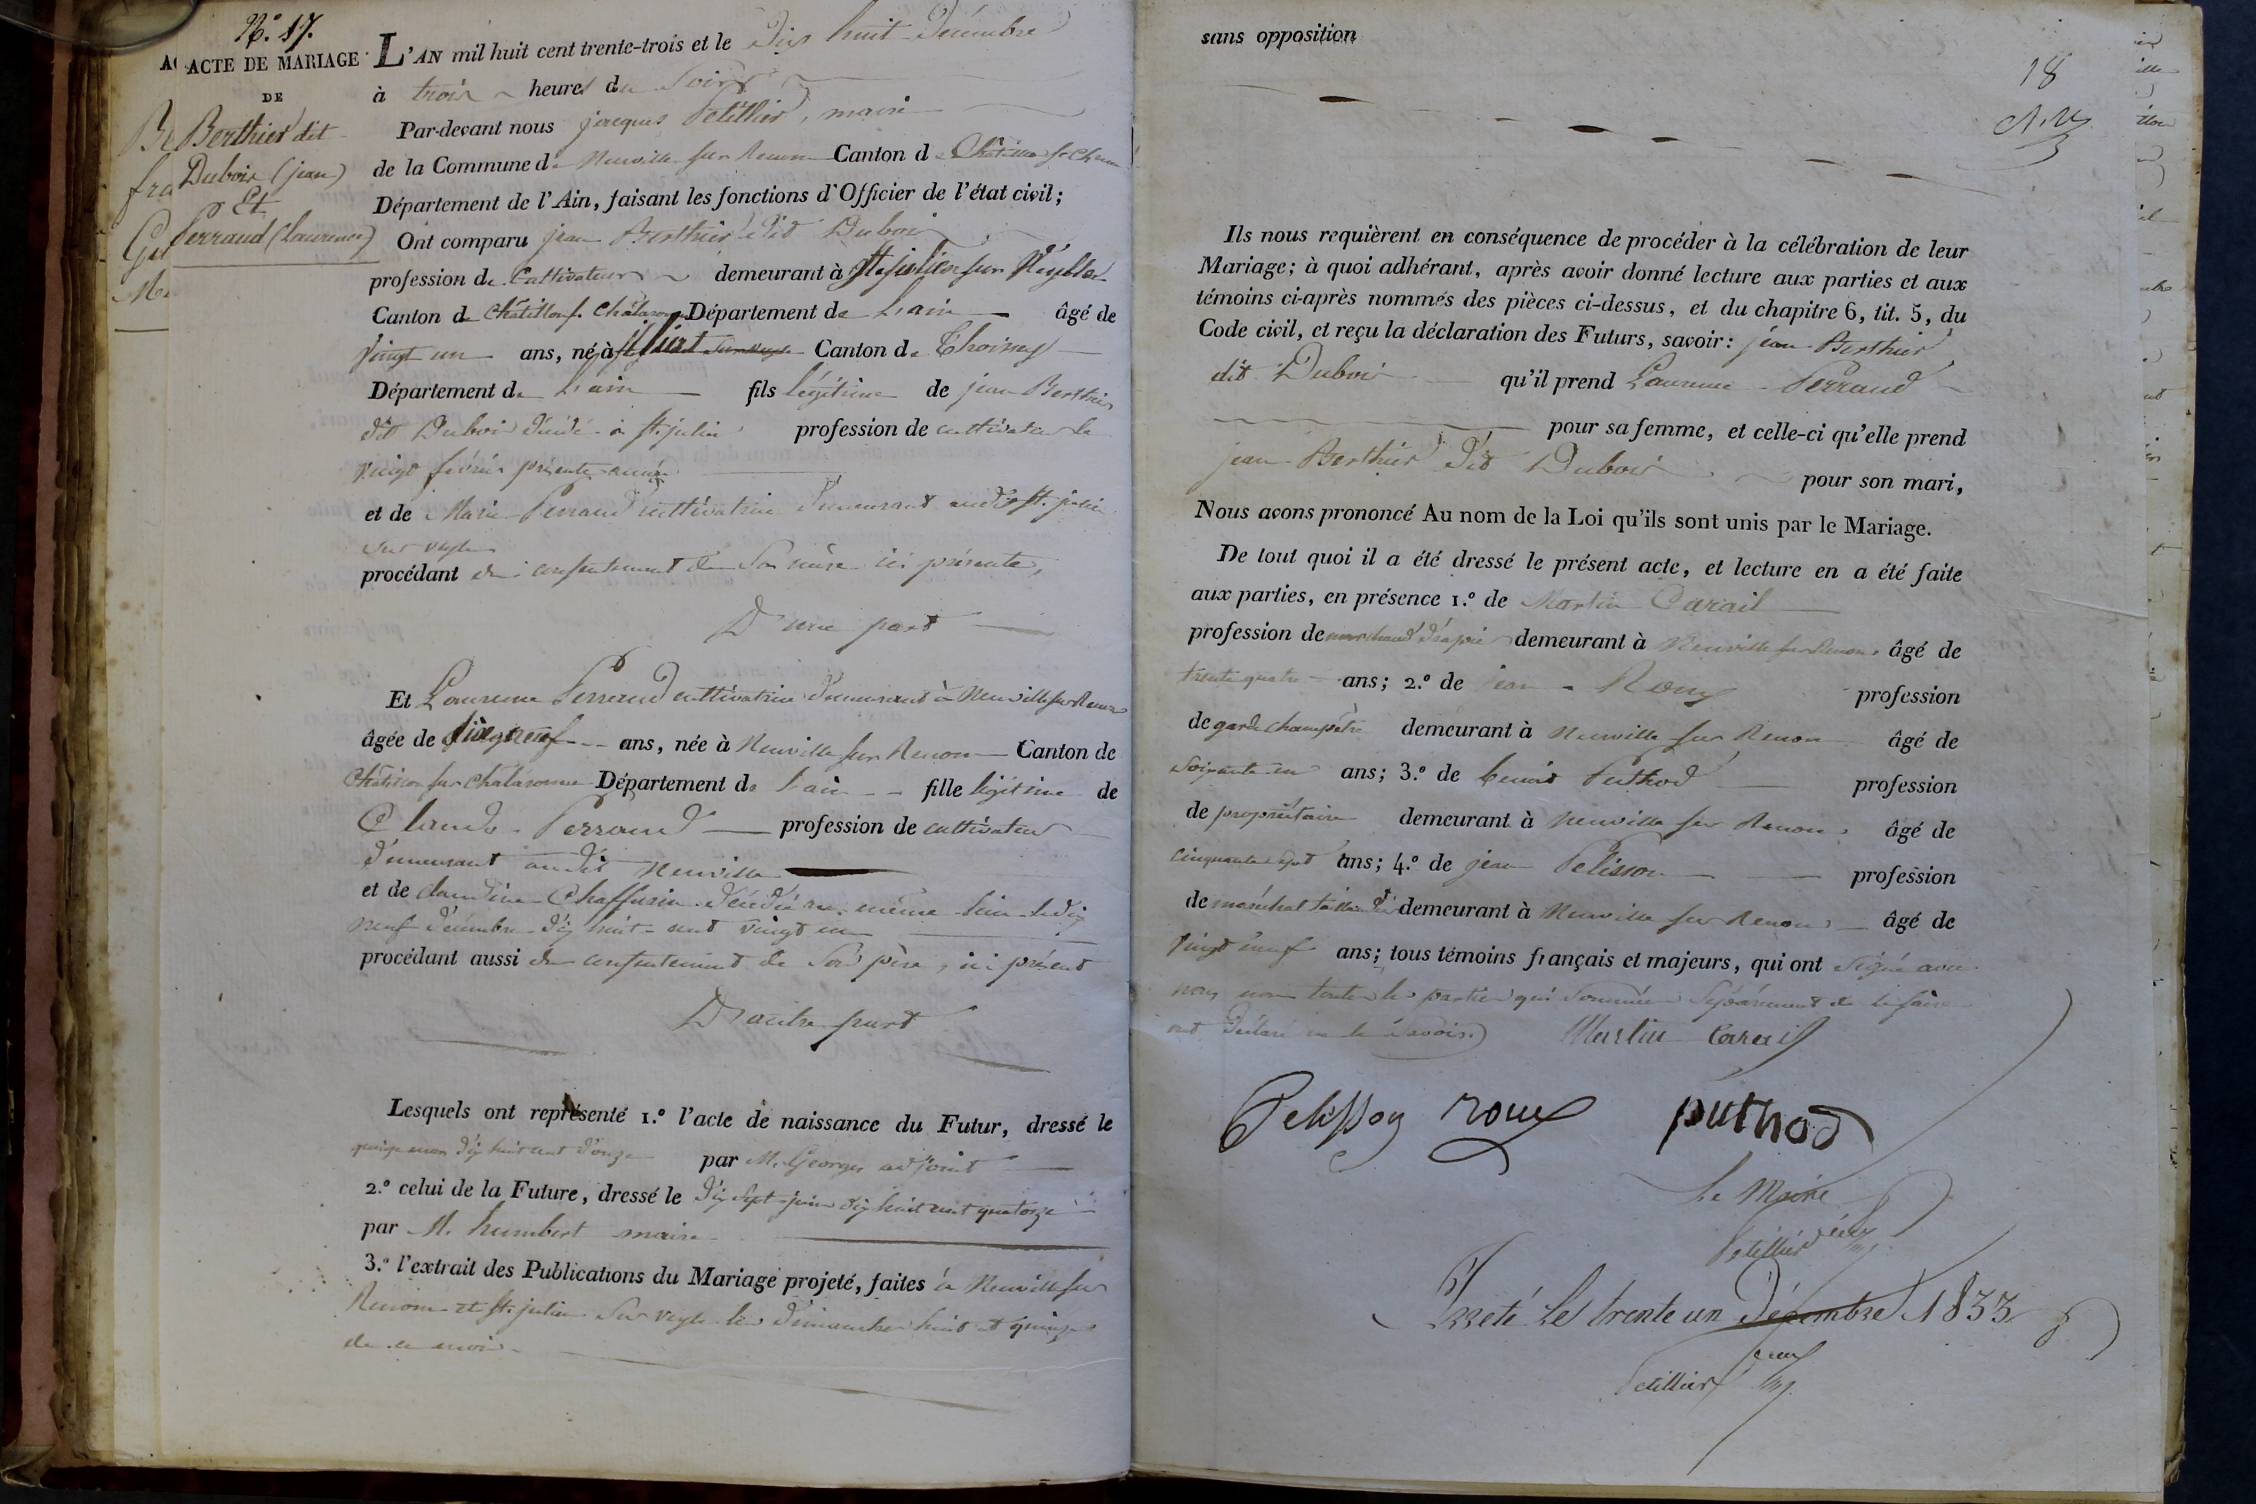 N.° 17.
ACTE DE MARIAGE
DE
Berthier dit
Dubois (jean)
Et
Perraud (Laurence)
L'AN mil huit cent trente-trois et le dix huit Décembre
à trois heures du Soir
Par-devant nous jacques Petillier, maire
de la Commune de Neuville sur Renom Canton de Châtillon s. Chalar
Département de l'Ain, faisant les fonctions d'Officier de l'état civil;
Ont comparu jean Berthier dit Dubois
profession de Cultivateur demeurant à St. julien sur Veyle
Canton de Châtillon s. Chalaronne Département de Lain âgé de
vingt un ans, né à Canton de Thoissey
Département de Lain fils légitime de jean Berthier
dit Dubois décédé à St. julien profession de cultivateur le
vingt février présente année
et de Marie Perraud cultivatrice demeurant audit St. julien
sur veyle
procédant du consentement de Sa mère ici présente,
D'une part
Et Laurence Perraud cultivatrice demeurant à Neuville sur Renom
âgée de dix neuf ans, née à Neuville sur Renom Canton de
Châtillon sur Chalaronne Département de Lain fille légitime de
Claude Perraud profession de cultivateur
demeurant audit Neuville
et de claudine Chaffurin décédée au même lieu le dix
neuf décembre dix huit cent vingt un
procédant aussi du consentement de Son père, ici présent
D'autre part
Lesquels ont représenté 1.° l'acte de naissance du Futur, dressé le
quinze mars dix huit cent douze par M. Georges adjoint
2.° celui de la Future, dressé le dix sept juin dix huit cent quatorze
par M. humbert maire
3.° l'extrait des Publications du Mariage projeté, faites à Neuville sur
Renom et St. julien sur veyle les dimanches huit et quinze
de ce mois
sans opposition
18
Ils nous requièrent en conséquence de procéder à la célébration de leur
Mariage; à quoi adhérant, après avoir donné lecture aux parties et aux
témoins ci-après nommés des pièces ci-dessus, et du chapitre 6, tit. 5, du
Code civil, et reçu la déclaration des Futurs, savoir: jean Berthier
dit Dubois qu'il prend Laurence Perraud
pour sa femme, et celle-ci qu'elle prend
jean Berthier dit Dubois pour son mari,
Nous avons prononcé Au nom de la Loi qu'ils sont unis par le Mariage.
De tout quoi il a été dressé le présent acte, et lecture en a été faite
aux parties, en présence 1.° de Martin Carail
profession de marchand drapier demeurant à Neuville sur Renom âgé de
trente quatre ans; 2.° de jean Roux profession
de garde champêtre demeurant à Neuville sur Renom âgé de
soixante un ans; 3.° de benoit Puthod profession
de propriétaire demeurant à Neuville sur Renom âgé de
cinquante sept ans; 4.° de jean Pelisson profession
de maréchal taillandier demeurant à Neuville sur Renom âgé de
vingt neuf ans; tous témoins français et majeurs, qui ont signé avec
nous non toutes les parties qui sommées séparément de le faire
ont déclaré ne le savoir.) Martin Carail
Pelisson roux puthod
Le Maire
Petillier
Arreté le trente un Décembre 1833
Petillier